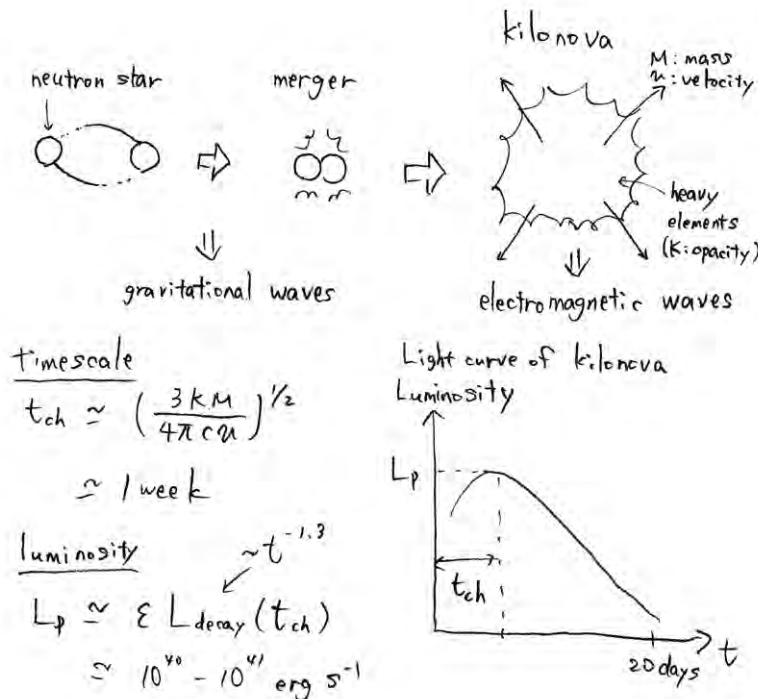 kilonova
neutron star
merger
M: mass
v: velocity
heavy
elements
(κ: opacity)
gravitational waves
electromagnetic waves
timescale
t_ch ≃ (3κM / 4πcv)^1/2
≃ 1 week
luminosity
~t^-1.3
L_p ≃ ε L_decay (t_ch)
≃ 10^40 - 10^41 erg s^-1
Light curve of kilonova
Luminosity
L_p
t_ch
20 days
t